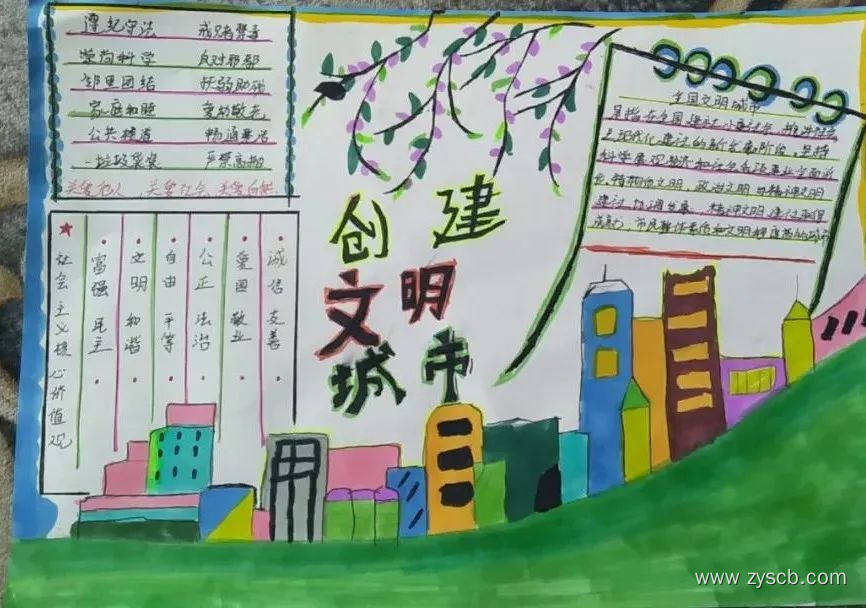 遵纪守法 戒赌禁毒
崇尚科学 反对邪教
邻里团结 扶弱助残
家庭和睦 爱幼敬老
公共楼道 畅通整洁
垃圾袋装 严禁高抛
关爱他人 关爱社会 关爱自然
★社会主义核心价值观
富强 民主
文明 和谐
自由 平等
公正 法治
爱国 敬业
诚信 友善
创建
文明
城市
全国文明城市
是指在全国建设小康社会,推进社会
主义现代化建设的新发展阶段,坚持
科学发展观经济和社会各项事业全面进
步,物质文明、政治文明与精神文明
建设协调发展,精神文明建设取得
成就,市民整体素质和文明程度较高的城市
www.zyscb.com